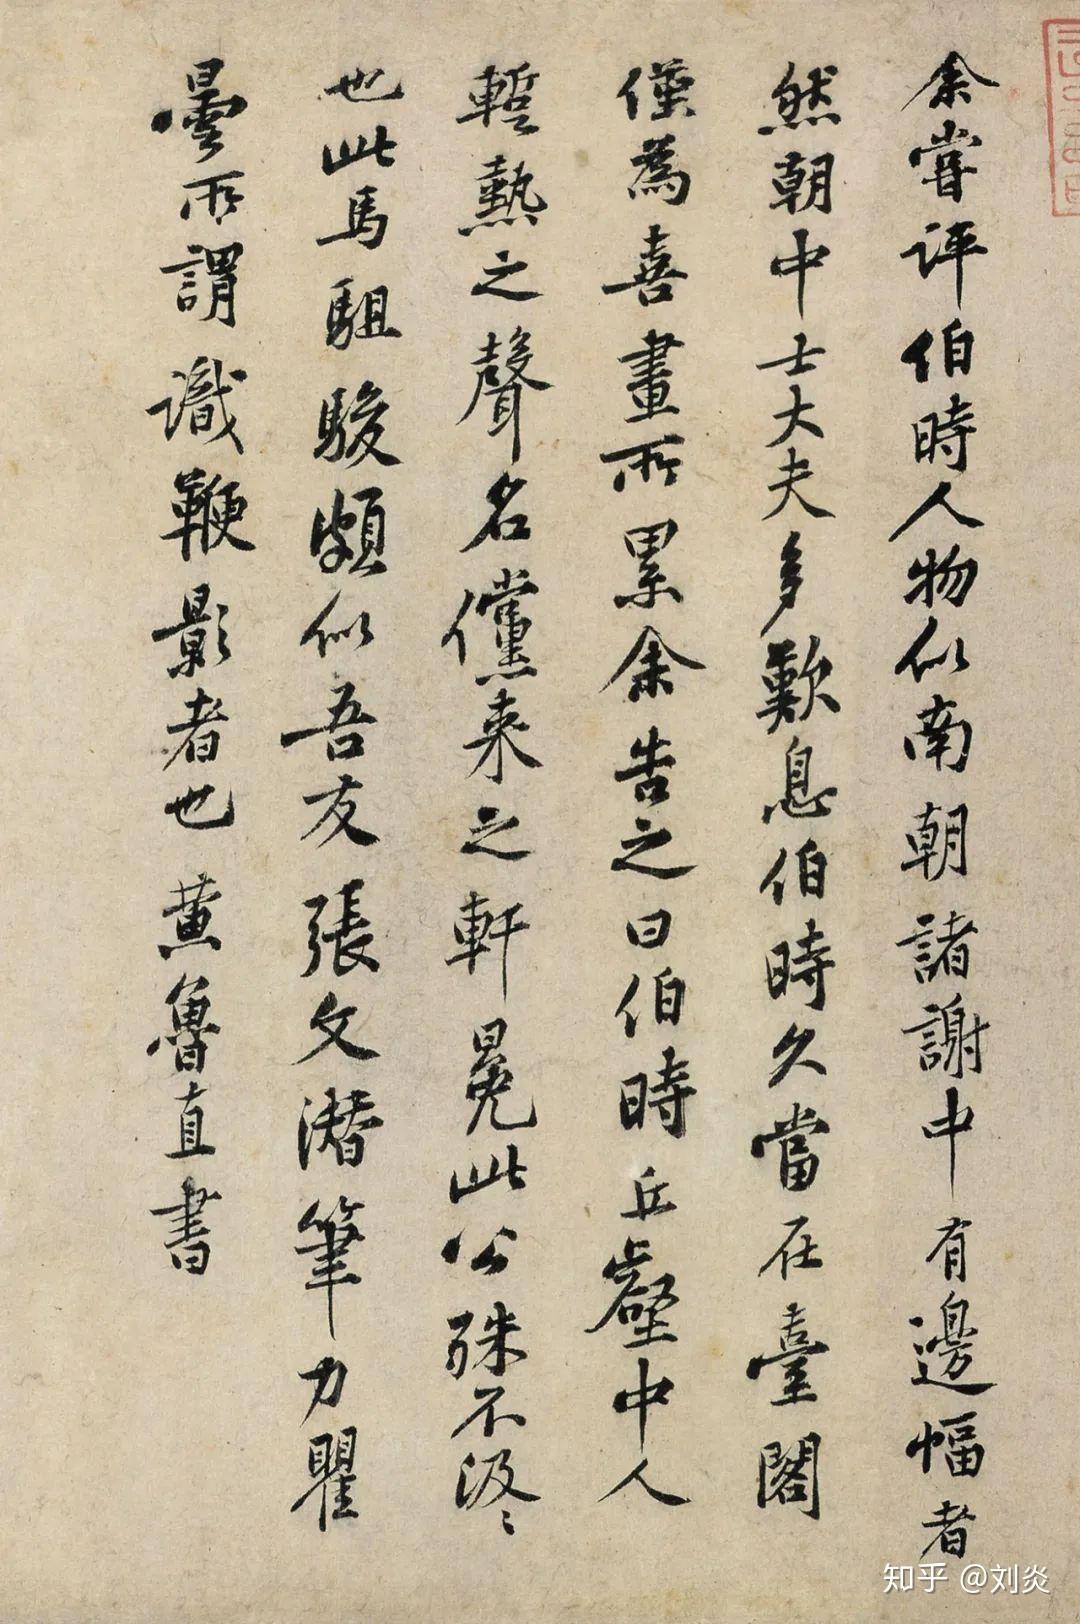 余嘗評伯時人物似南朝諸謝中有邊幅者
然朝中士大夫多歎息伯時久當在臺閣
僅為喜畫所累余告之曰伯時丘壑中人
蹔熱之聲名儻来之軒冕此公殊不汲汲
也此馬駔駿頗似吾友張文潛筆力瞿
曇所謂識鞭影者也 黄魯直書
知乎 @刘炎